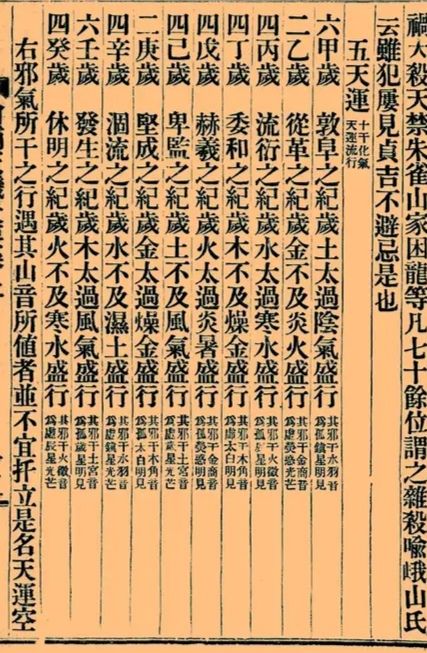 禍大殺天禁朱雀山家困龍等凡七十餘位謂之雜殺喻峨山氏
云雖犯屢見貞吉不避忌是也
五天運 十干化氣天運流行
六甲歲 敦阜之紀歲土太過陰氣盛行 其邪干水羽音為孤鎮星明見
二乙歲 從革之紀歲金不及炎火盛行 其邪干金商音為虛熒惑光芒
四丙歲 流衍之紀歲水太過寒水盛行 其邪干火徵音為孤辰星明見
四丁歲 委和之紀歲木不及燥金盛行 其邪干木角音為虛太白明見
四戊歲 赫羲之紀歲火太過炎暑盛行 其邪干金商音為孤熒惑明見
四己歲 卑監之紀歲土不及風氣盛行 其邪干土宮音為虛歲星光芒
二庚歲 堅成之紀歲金太過燥金盛行 其邪干木角音為孤太白明見
四辛歲 涸流之紀歲水不及濕土盛行 其邪干水羽音為虛鎮星光芒
六壬歲 發生之紀歲木太過風氣盛行 其邪干土宮音為孤歲星明見
四癸歲 休明之紀歲火不及寒水盛行 其邪干火徵音為虛辰星光芒
右邪氣所干之行遇其山音所值者並不宜扦立是名天運空